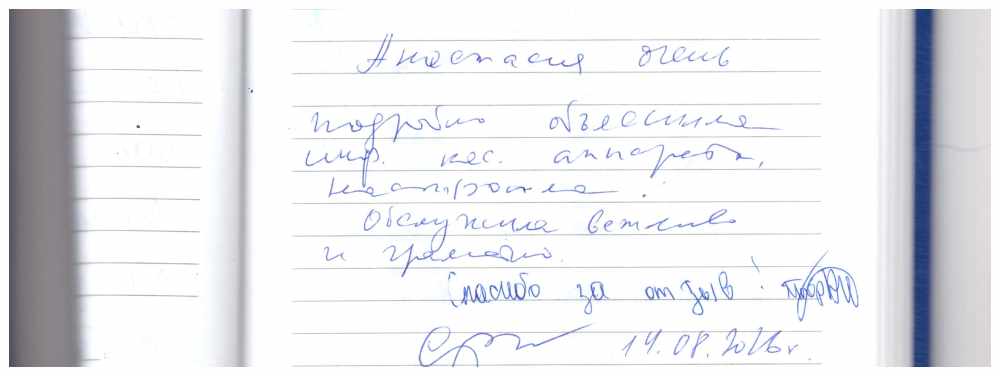 Анастасия очень
подробно объяснила
инф. кас. аппарата,
настроила.
Обслужила вежливо
и грамотно.
Спасибо за отзыв!
14.08.2016г.